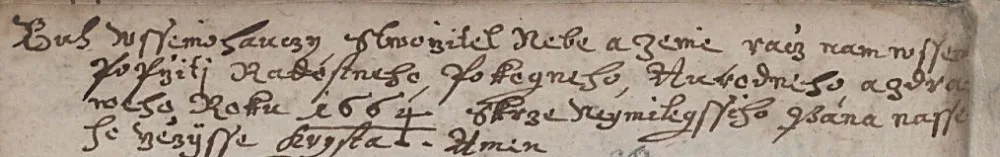 Buh wssemohauczy Stworzitel Nebe a zeme racz nam wssem
Poprziti Radostneho, Pokogneho, Aurodneho a zdra
weho Roku 1664 Skrze Neymilegssiho Pána nasse
ho Gezisse Krysta. Amen